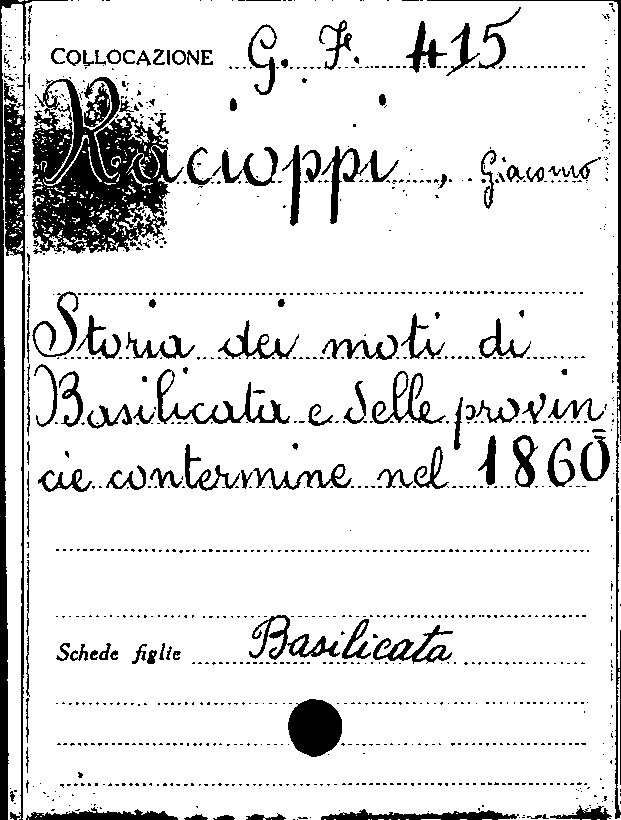 COLLOCAZIONE G. F. 415
Racioppi, Giacomo
Storia dei moti di
Basilicata e delle provin=
cie contermine nel 1860
Schede figlie Basilicata